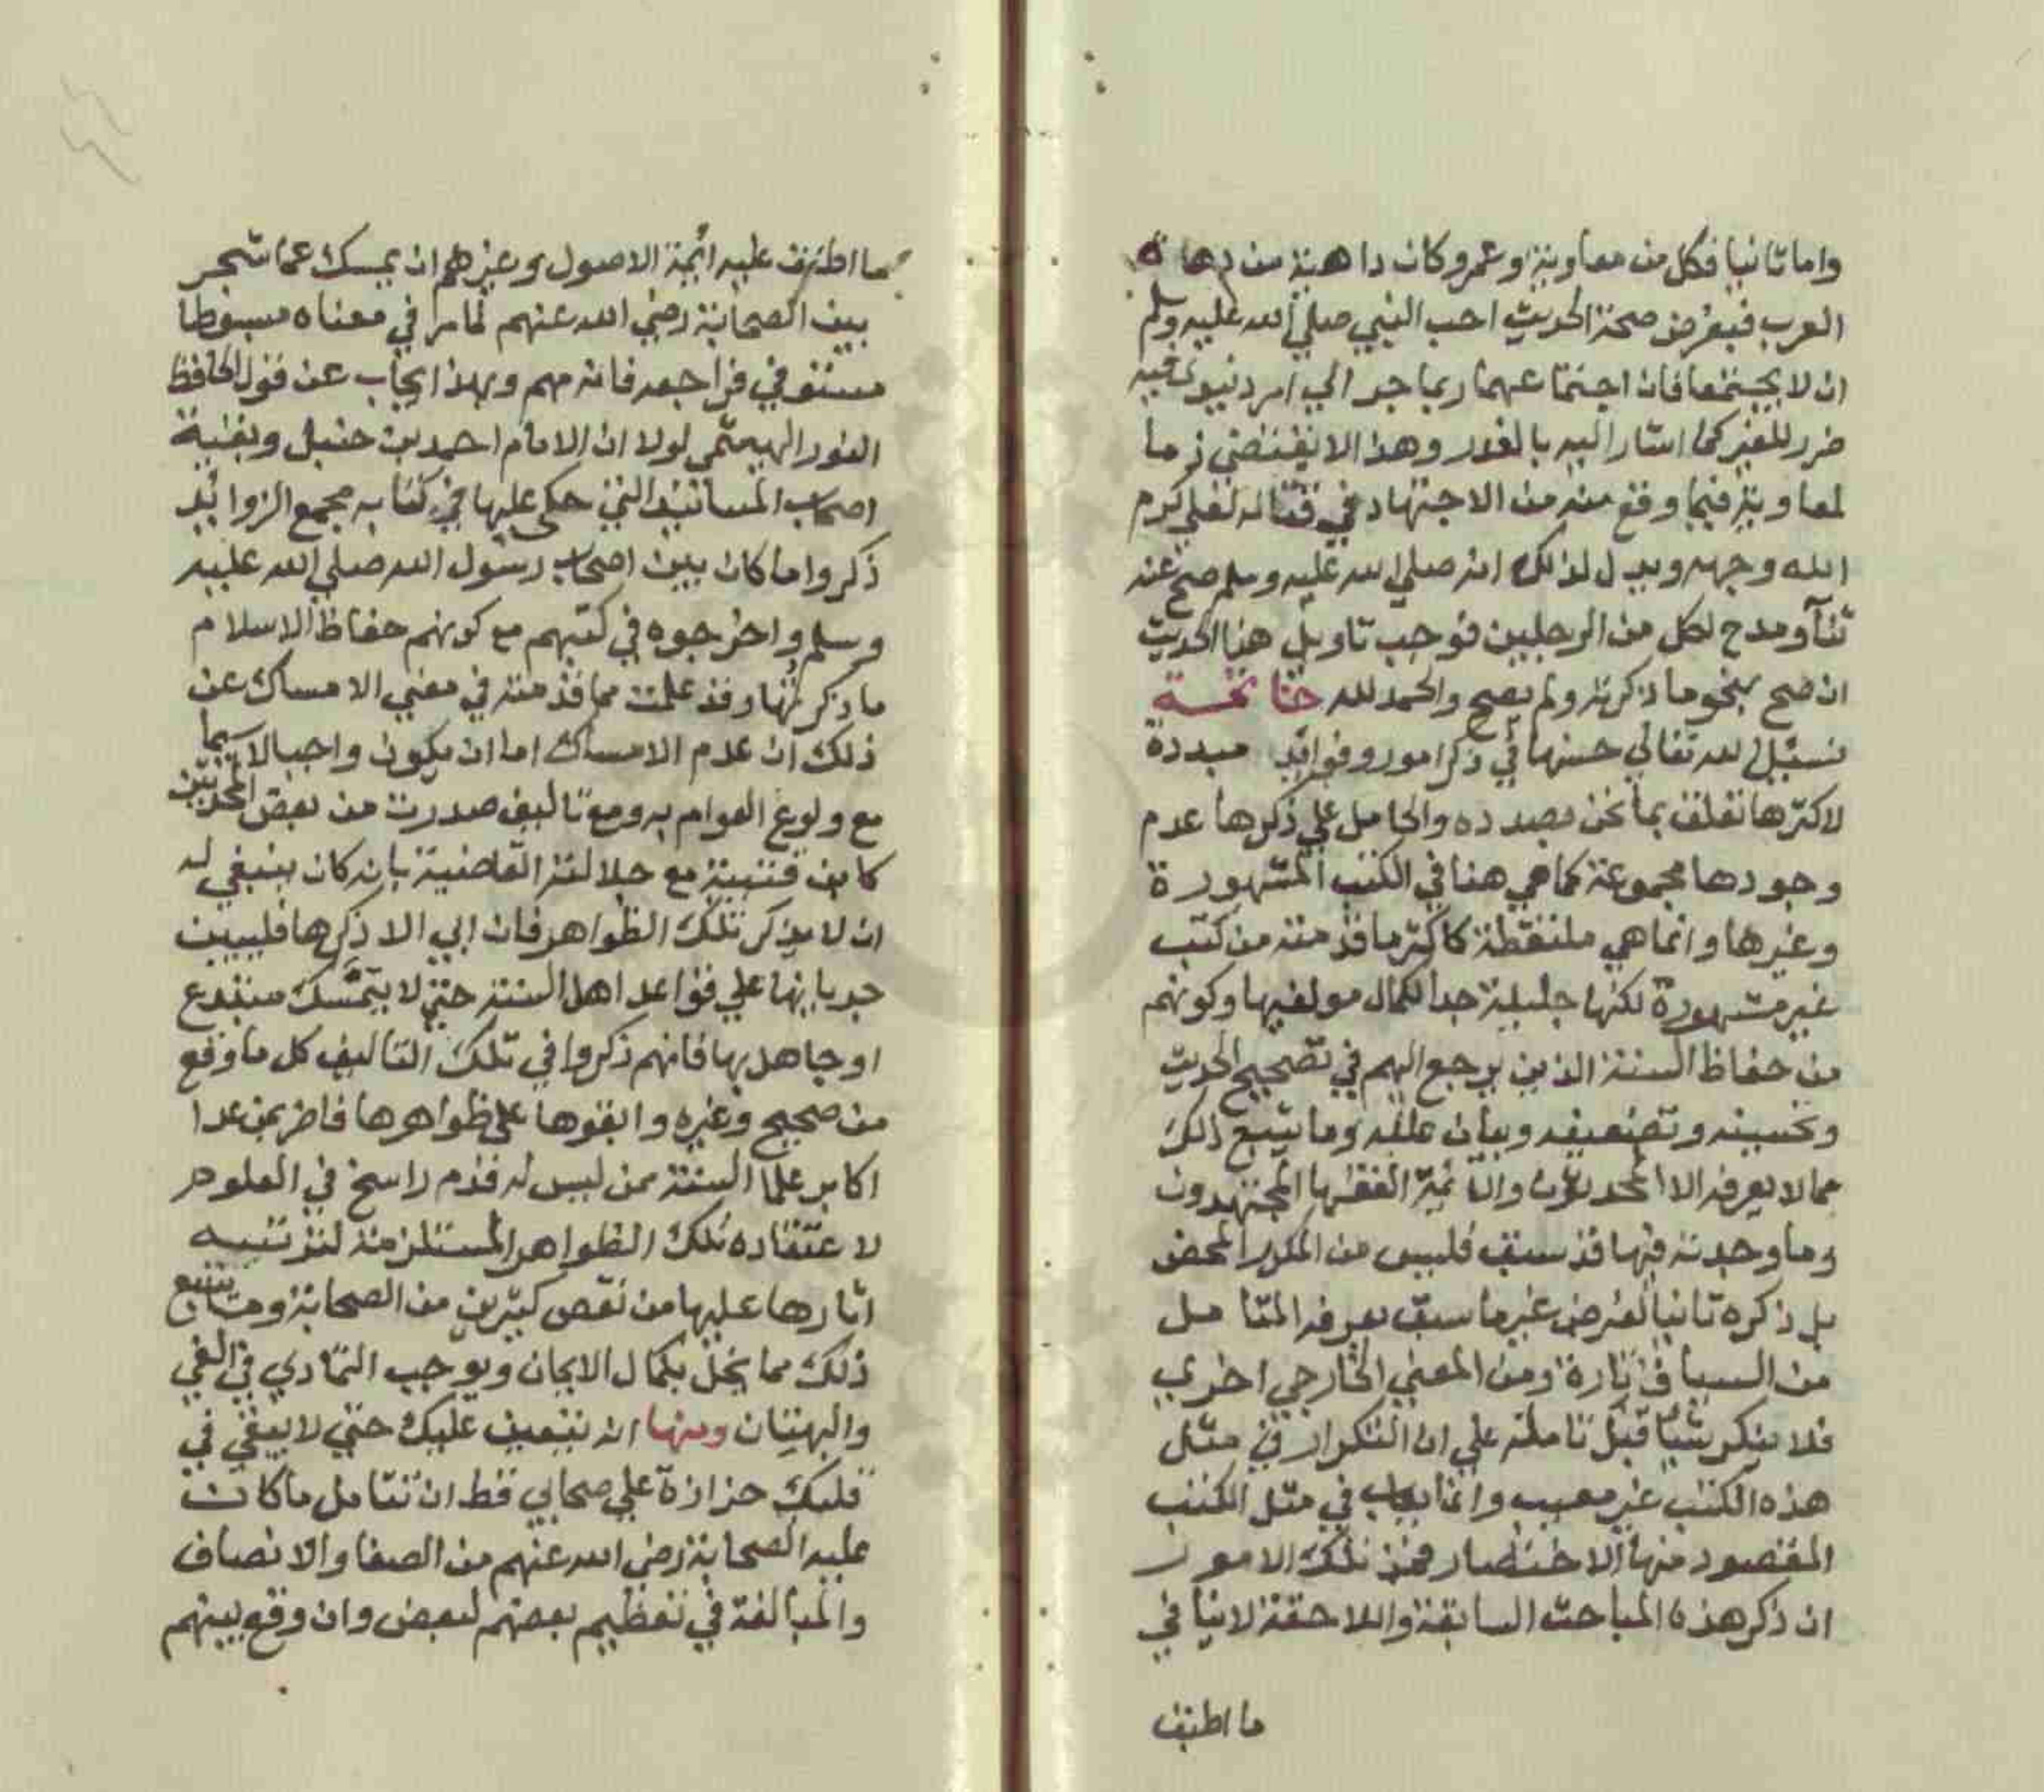 واما ثانيا فكل من معاوية وعمرو كان داهية من دهاة
العرب فبفرض صحة الحديث احب النبي صلي الله عليه وسلم
ان لا يجتمعا فان اجتماعهما ربما جر الي امر دنيوي فيه
ضرر للغير كما اشار اليه بالغدر وهذا لا يقتضي ذما
لمعاوية فيما وقع منه من الاجتهاد في قتاله لعلي كرم
الله وجهه ويدل لذلك انه صلي الله عليه وسلم صح عنه
ثنآ ومدح لكل من الرجلين فوجب تاويل هذا الحديث
ان صح بنحو ما ذكرته ولم يصح والحمد لله خاتمة
نسئل الله تعالي حسنها في ذكر امور وفوائد مبددة
لاكثرها تعلق بما نحن بصدده والحامل علي ذكرها عدم
وجودها مجموعة كما هي هنا في الكتب المشهورة
وغيرها وانما هي ملتقطة كاكثر ما قدمته من كتب
غير مشهورة لكنها جليلة جدا لكمال مولفيها وكونهم
من حفاظ السنة الذين يرجع اليهم في تصحيح الحديث
وتحسينه وتضعيفه وبيان علله وما يتبع ذلك
مما لا يعرفه الا المحدثون والائمة الفقها المجتهدون
وما وجدته فيها قد سبق فليس من المكرر المحض
بل ذكره ثانيا لغرض غير ما سبق يعرفه المتامل
من السياق تارة ومن المعني الخارجي اخري
فلا ينكر شيا قبل تامله علي ان التكرار في مثل
هذه الكتب غير معيب وانما يعاب في مثل الكتب
المقصود منها الاختصار فمن تلك الامور
ان ذكر هذه المباحث السابقة واللاحقة لا ينافي
ما اطبق
ما اطبق عليه ائمة الاصول وغيرهم ان يمسك عما شجر
بين الصحابة رضي الله عنهم لما مر في معناه مبسوطا
مستوفي فراجعه فانه مهم وبهذا يجاب عن قول الحافظ
النور الهيثمي لولا ان الامام احمد بن حنبل وبقية
اصحاب المسانيد التي حكي عليها في كتابه مجمع الزوائد
ذكروا ما كان بين اصحاب رسول الله صلي الله عليه
وسلم واخرجوه في كتبهم مع كونهم حفاظ الاسلام
ما ذكرتها وقد علمت مما قدمته في معني الامساك عن
ذلك ان عدم الامساك اما ان يكون واجبا لا سيما
مع ولوع العوام به ومع تاليف صدرت من بعض المحدثين
كابن قتيبة مع جلالته القاضية بانه كان ينبغي له
ان لا يذكر تلك الظواهر فان ابي الا ذكرها فليبين
جريانها علي قواعد اهل السنة حتي لا يتمسك مبتدع
او جاهل بها فانهم ذكروا في تلك التاليف كل ما وقع
من صحيح وغيره وابقوها علي ظواهرها فاضر بمن عدا
اكابر علما السنة ممن ليس له قدم راسخ في العلوم
لاعتقاده تلك الظواهر المستلزمة لترتيب
اثارها عليها من نقص كثيرين من الصحابة وما يتبع
ذلك مما يخل بكمال الايمان ويوجب التمادي في الغي
والبهتان ومنها انه يتعين عليك حتي لا يبقي في
قلبك حزازة علي صحابي قط ان تتامل ما كانت
عليه الصحابة رضي الله عنهم من الصفا والانصاف
والمبالغة في تعظيم بعضهم لبعض وان وقع بينهم